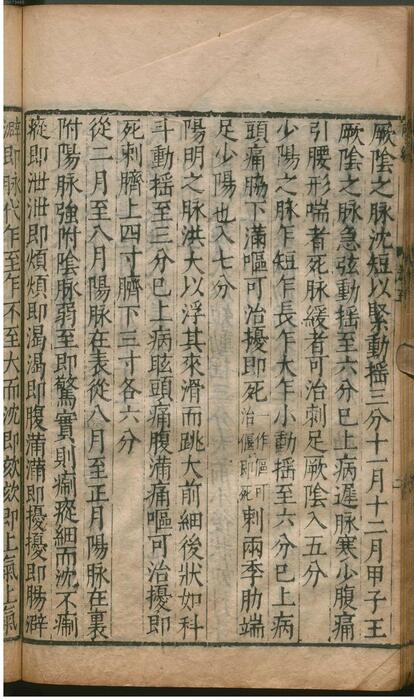 厥陰之脉沈短以緊動揺三分十一月十二月甲子王
厥陰之脉急弦動揺至六分巳上病遲脉寒少腹痛
引腰形喘者死脉緩者可治刺足厥陰入五分
少陽之脉乍短乍長乍大乍小動揺至六分巳上病
頭痛脇下滿嘔可治擾即死作嘔可治偃即死刺兩季肋端
足少陽也入七分
陽明之脉洪大以浮其來滑而跳大前細後狀如科
斗動揺至三分巳上病眩頭痛腹滿痛嘔可治擾即
死刺臍上四寸臍下三寸各六分
從二月至八月陽脉在表從八月至正月陽脉在裏
附陽脉強附陰脉弱至即驚實則瘈瘲細而沈不瘈
瘲即泄泄即煩煩即渴渴即腹滿滿即擾擾即腸澼
澼即脉代乍至乍不至大而沈即欬欬即上氣上氣